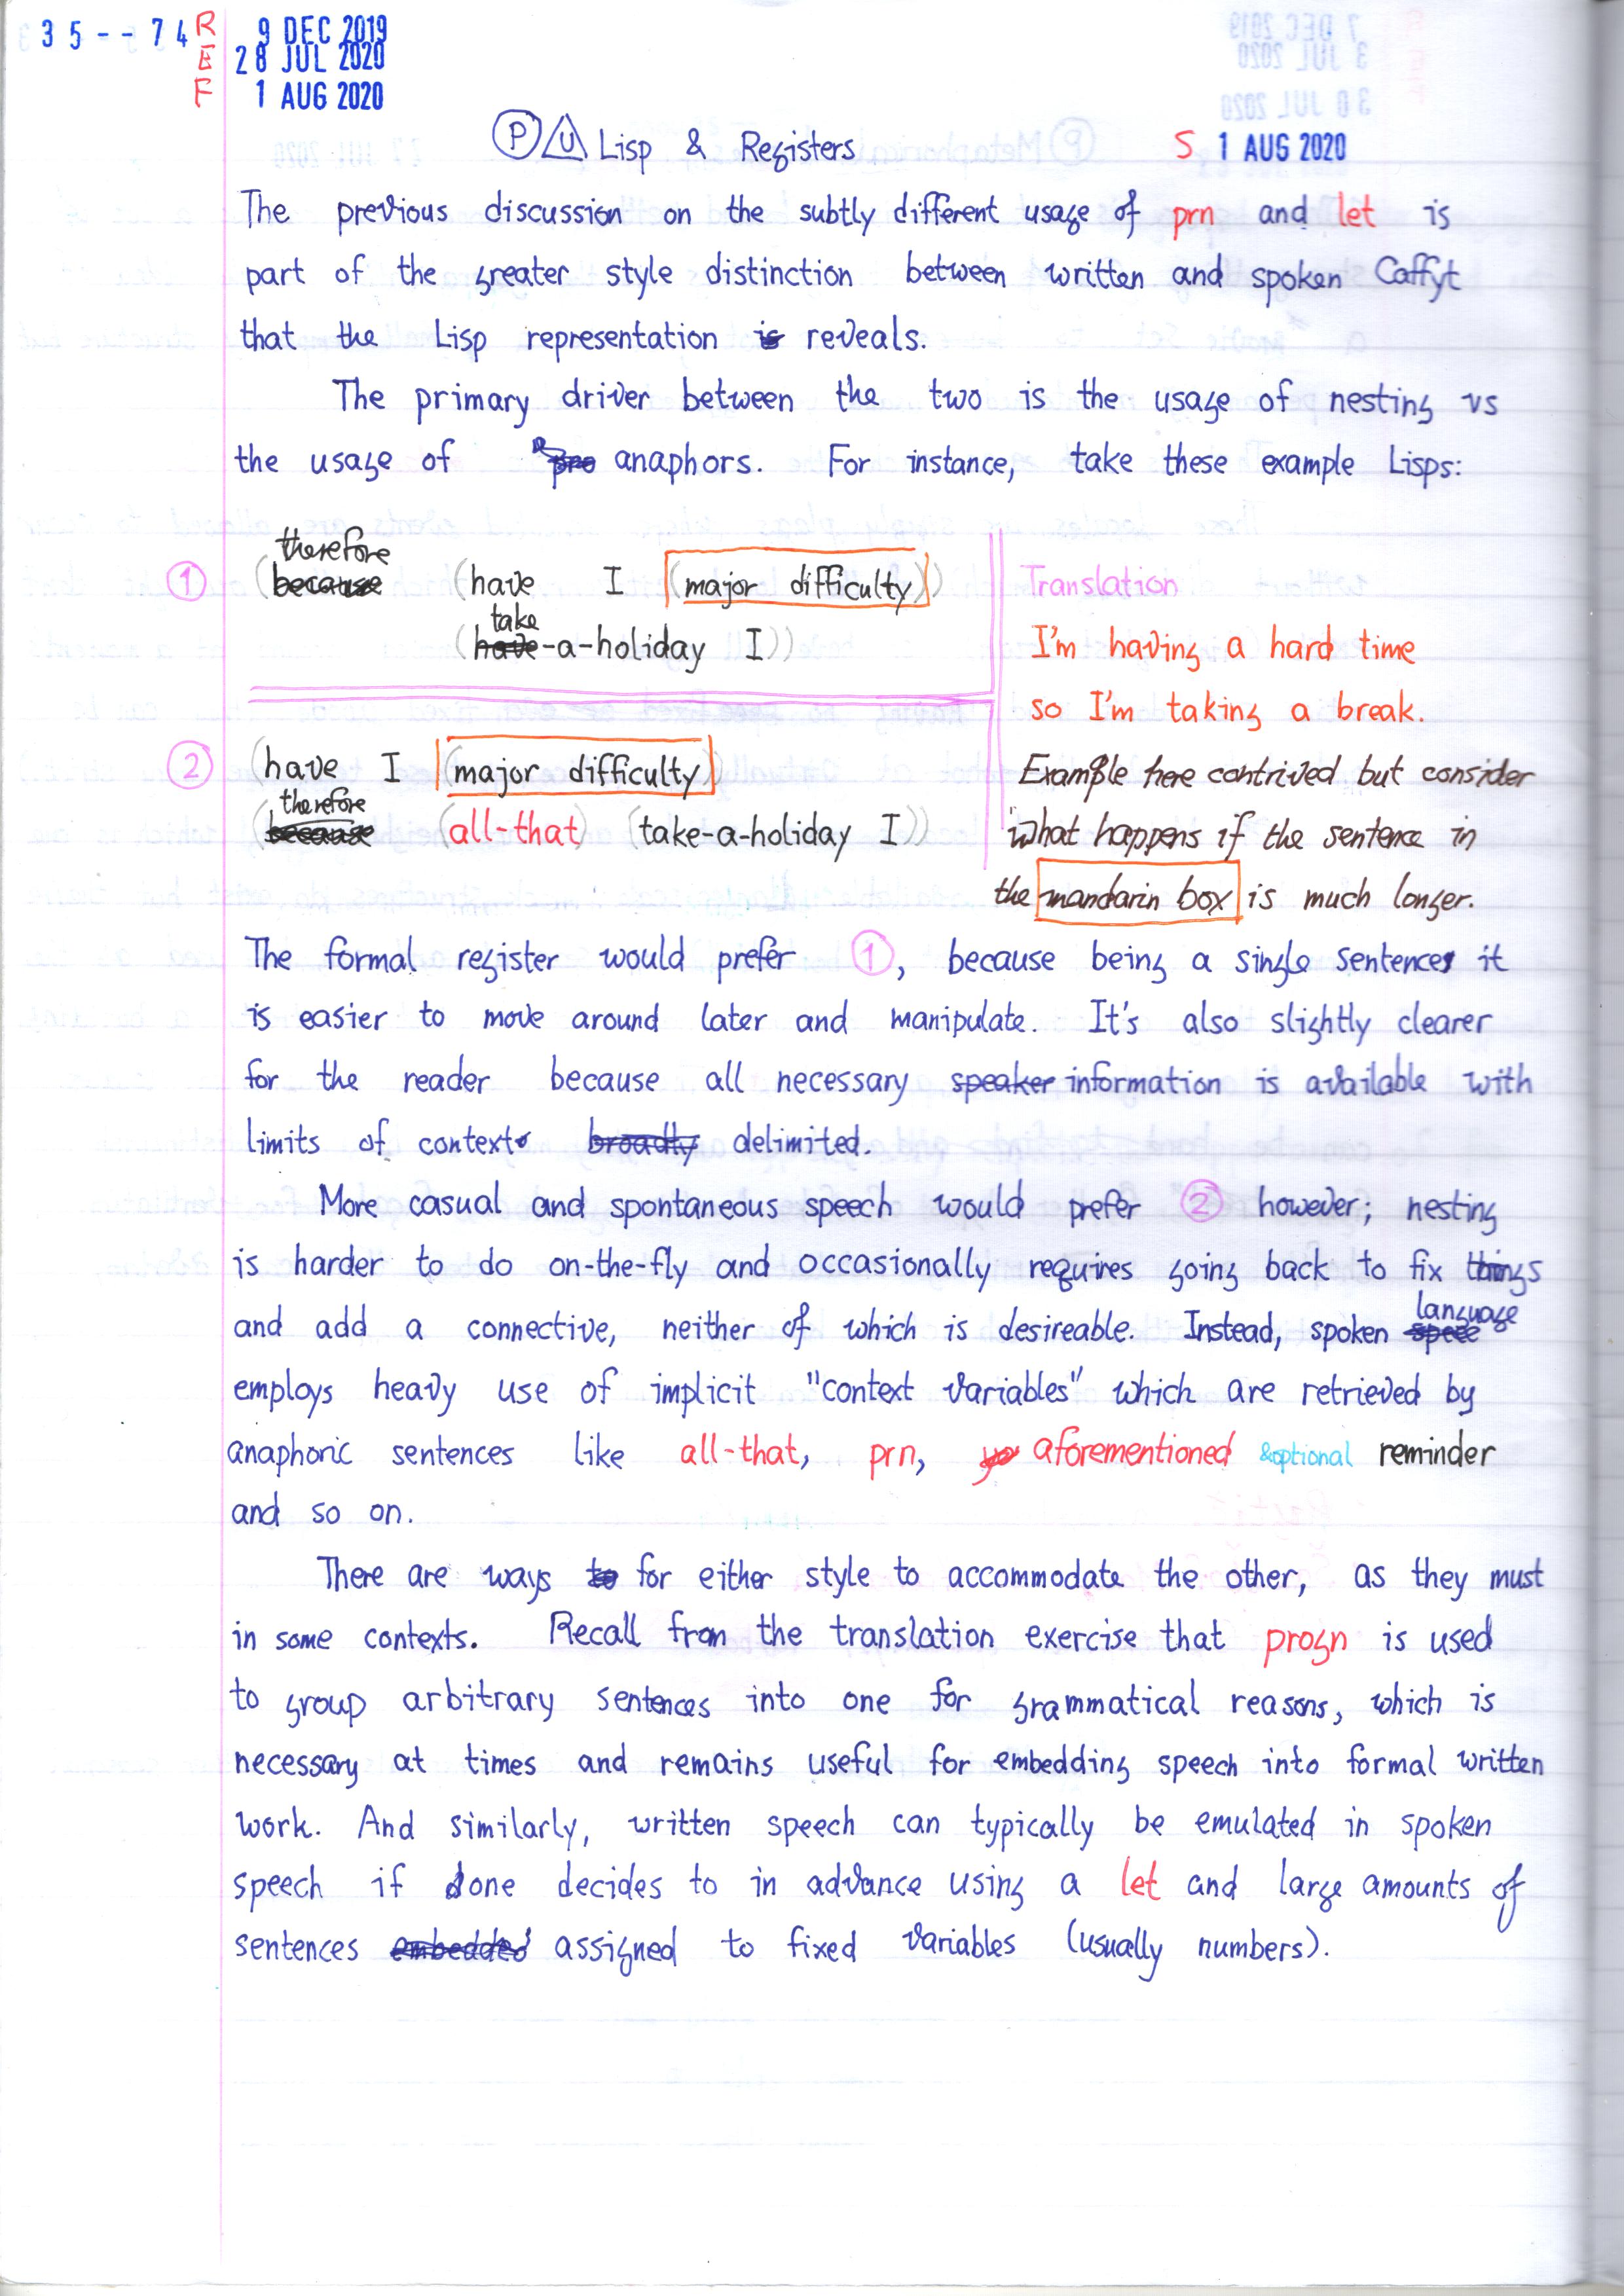 35--74 REF 9 DEC 2019
28 JUL 2020
1 AUG 2020
P U Lisp & Registers S 1 AUG 2020
The previous discussion on the subtly different usage of prn and let is
part of the greater style distinction between written and spoken Caffyt
that the Lisp representation is reveals.
The primary driver between the two is the usage of nesting vs
the usage of pro anaphors. For instance, take these example Lisps:
therefore
1 (because (have I (major difficulty))
take
(have-a-holiday I))
Translation
I'm having a hard time
so I'm taking a break.
2 (have I (major difficulty)
therefore
(because (all-that) (take-a-holiday I))
Example here contrived but consider
what happens if the sentence in
the mandarin box is much longer.
The formal register would prefer 1, because being a single sentence it
is easier to move around later and manipulate. It's also slightly clearer
for the reader because all necessary speaker information is available with
limits of context broadly delimited.
More casual and spontaneous speech would prefer 2 however; nesting
is harder to do on-the-fly and occasionally requires going back to fix things
language
and add a connective, neither of which is desireable. Instead, spoken spee
employs heavy use of implicit "context variables" which are retrieved by
anaphoric sentences like all-that, prn, yo aforementioned &optional reminder
and so on.
There are ways to for either style to accommodate the other, as they must
in some contexts. Recall from the translation exercise that progn is used
to group arbitrary sentences into one for grammatical reasons, which is
necessary at times and remains useful for embedding speech into formal written
work. And similarly, written speech can typically be emulated in spoken
speech if one decides to in advance using a let and large amounts of
sentences embedded assigned to fixed variables (usually numbers).